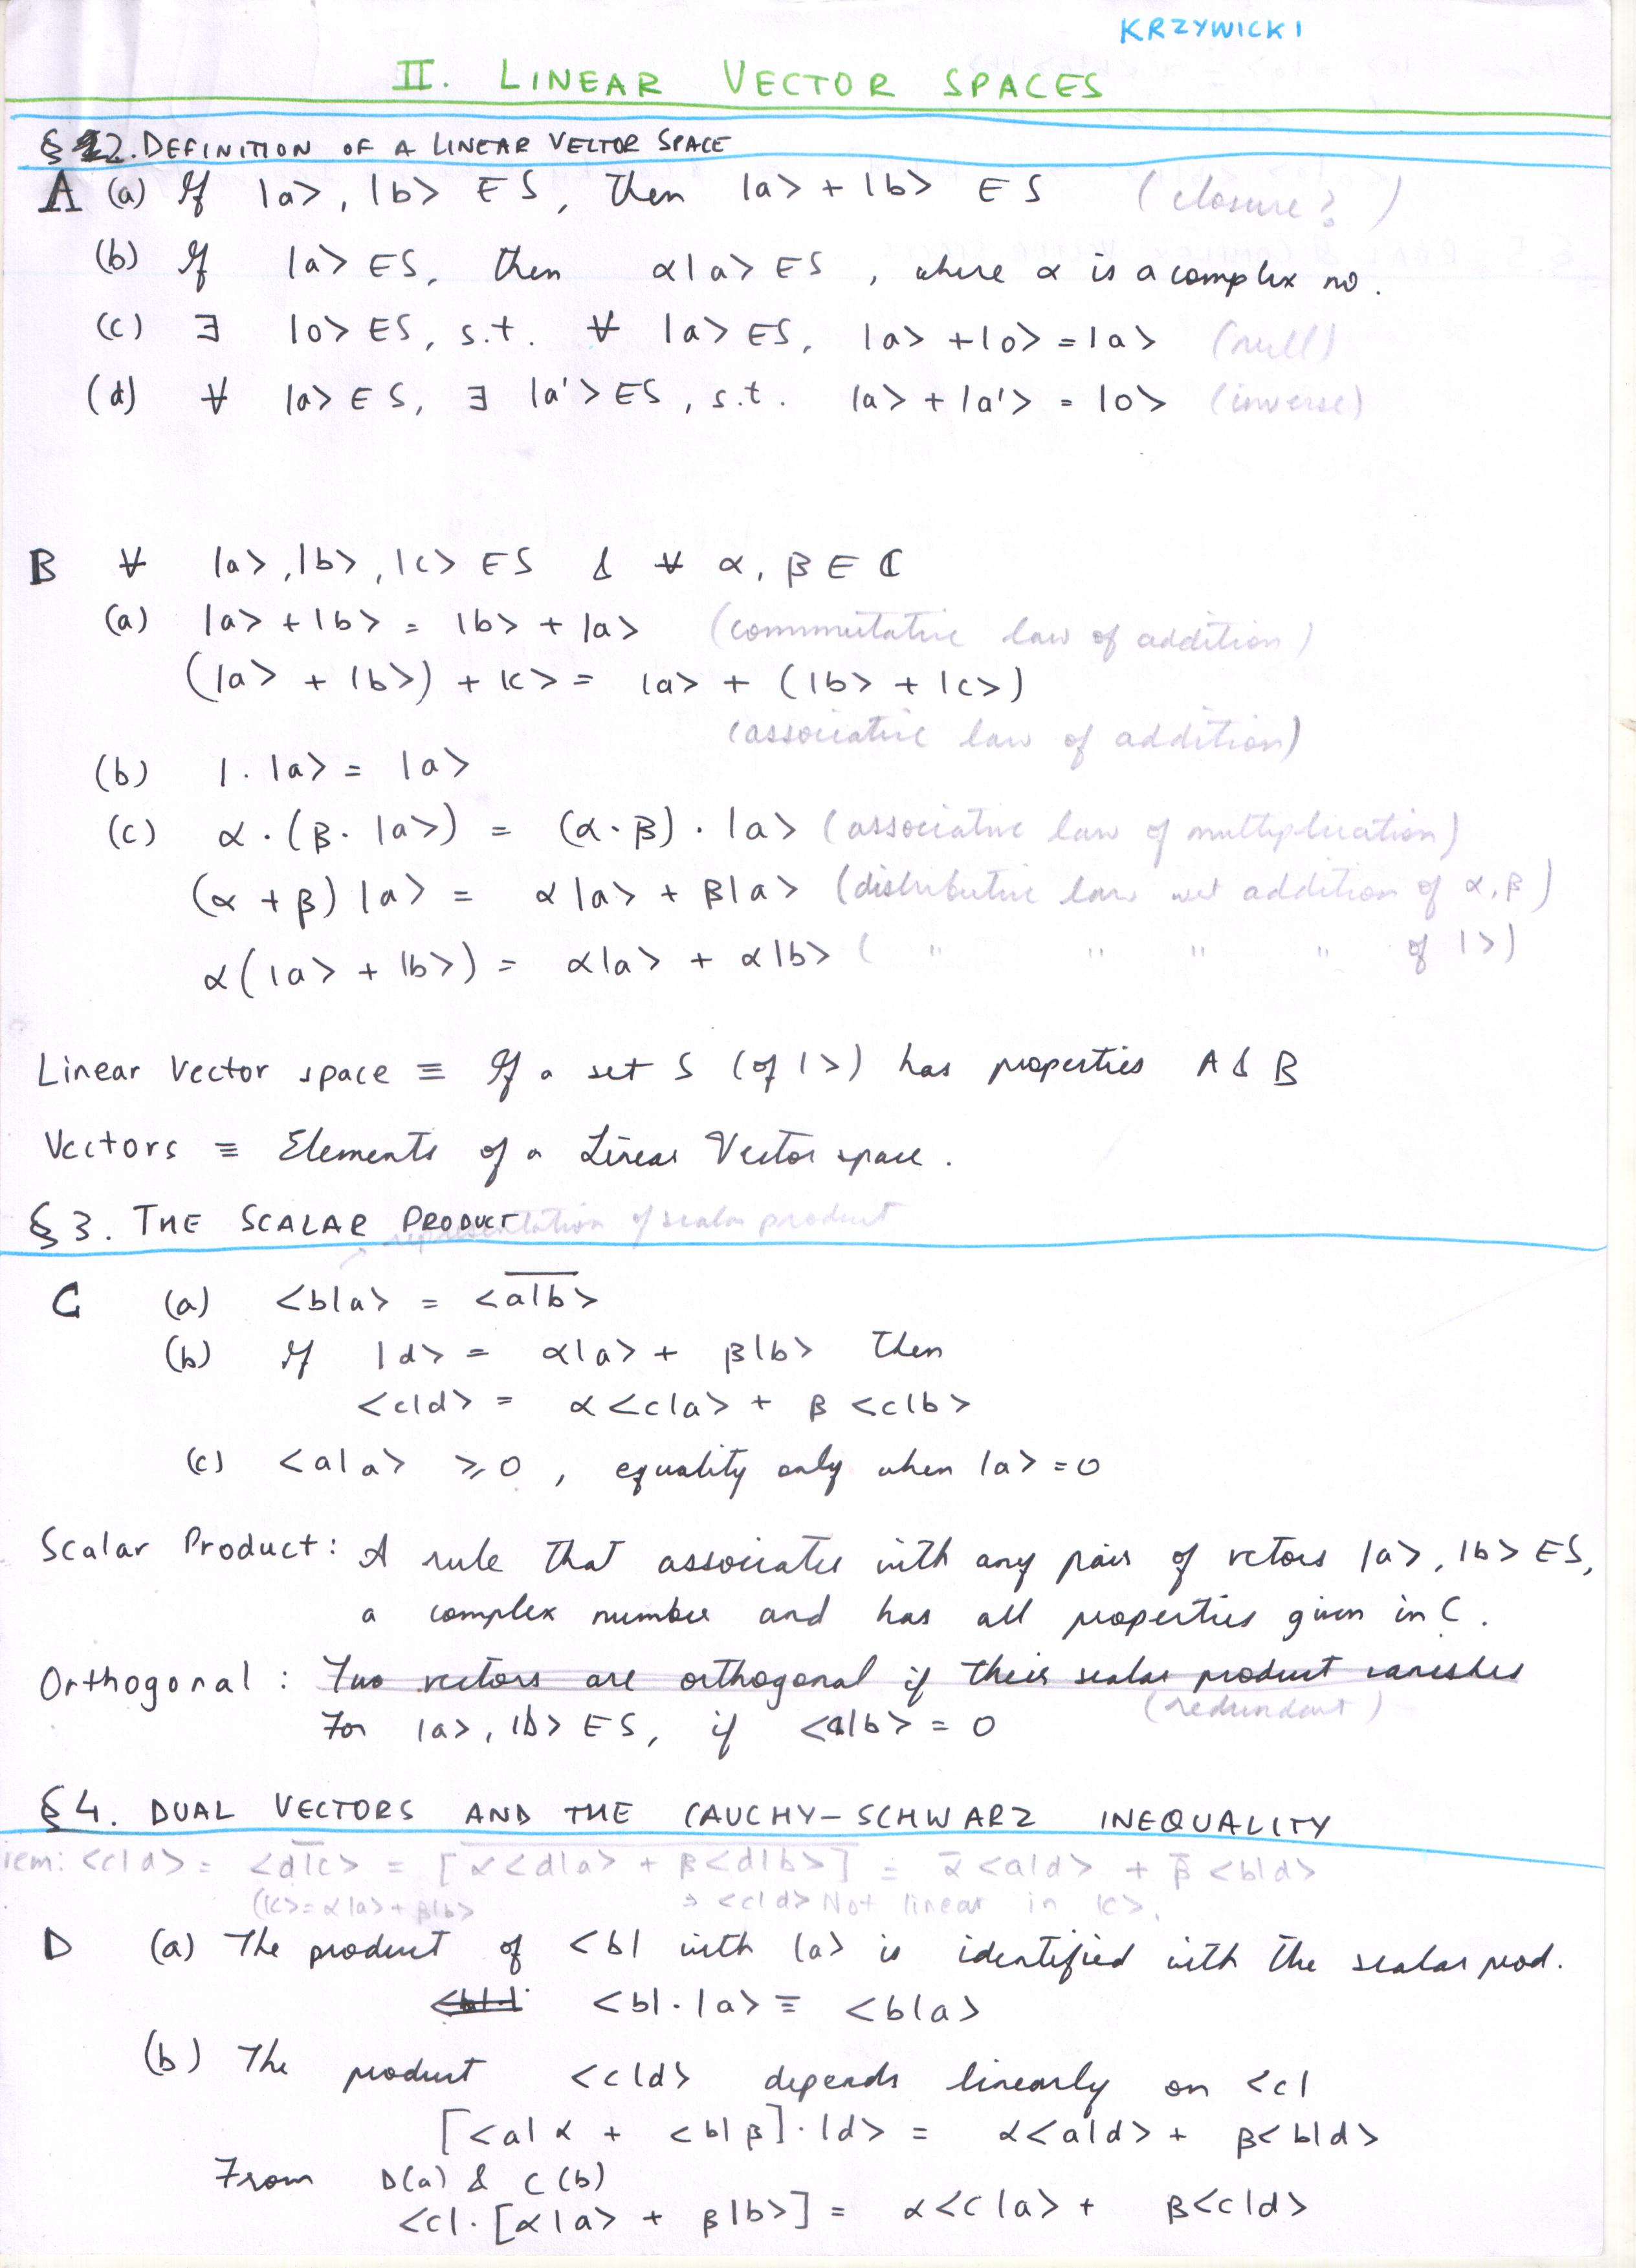 KRZYWICKI
II. LINEAR VECTOR SPACES
§ 2. DEFINITION OF A LINEAR VECTOR SPACE
A (a) If |a>, |b> ∈ S, then |a> + |b> ∈ S (closure?)
(b) If |a> ∈ S, then α|a> ∈ S, where α is a complex no.
(c) ∃ |0> ∈ S, s.t. ∀ |a> ∈ S, |a> + |0> = |a> (null)
(d) ∀ |a> ∈ S, ∃ |a'> ∈ S, s.t. |a> + |a'> = |0> (inverse)
B ∀ |a>, |b>, |c> ∈ S & ∀ α, β ∈ ℂ
(a) |a> + |b> = |b> + |a> (commutative law of addition)
(|a> + |b>) + |c> = |a> + (|b> + |c>)
(associative law of addition)
(b) 1 . |a> = |a>
(c) α · (β · |a>) = (α · β) · |a> (associative law of multiplication)
(α + β) |a> = α|a> + β|a> (distributive law wrt addition of α, β)
α(|a> + |b>) = α|a> + α|b> ( " " " " of |>)
Linear Vector space ≡ If a set S (of |>) has properties A & B
Vectors ≡ Elements of a Linear Vector space.
§ 3. THE SCALAR PRODUCT
representation of scalar product
C (a) <b|a> = <a̅|̅b̅>
(b) If |d> = α|a> + β|b> then
<c|d> = α<c|a> + β<c|b>
(c) <a|a> ≥ 0, equality only when |a> = 0
Scalar Product: A rule that associates with any pair of vctors |a>, |b> ∈ S,
a complex number and has all properties given in C.
Orthogonal: Two vectors are orthogonal if their scalar product vanishes
(redundant)
For |a>, |b> ∈ S, if <a|b> = 0
§ 4. DUAL VECTORS AND THE CAUCHY-SCHWARZ INEQUALITY
rem: <c|d> = <d̅|̅c̅> = [α<d|a> + β<d|b>] = α̅<a|d> + β̅<b|d>
(|c> = α|a> + β|b> ⇒ <c|d> Not linear in |c>.
D (a) The product of <b| with |a> is identified with the scalar prod.
<b|·|a> ≡ <b|a>
(b) The product <c|d> depends linearly on <c|
[<a|α + <b|β]·|d> = α<a|d> + β<b|d>
From D(a) & C(b)
<c|·[α|a> + β|b>] = α<c|a> + β<c|d>